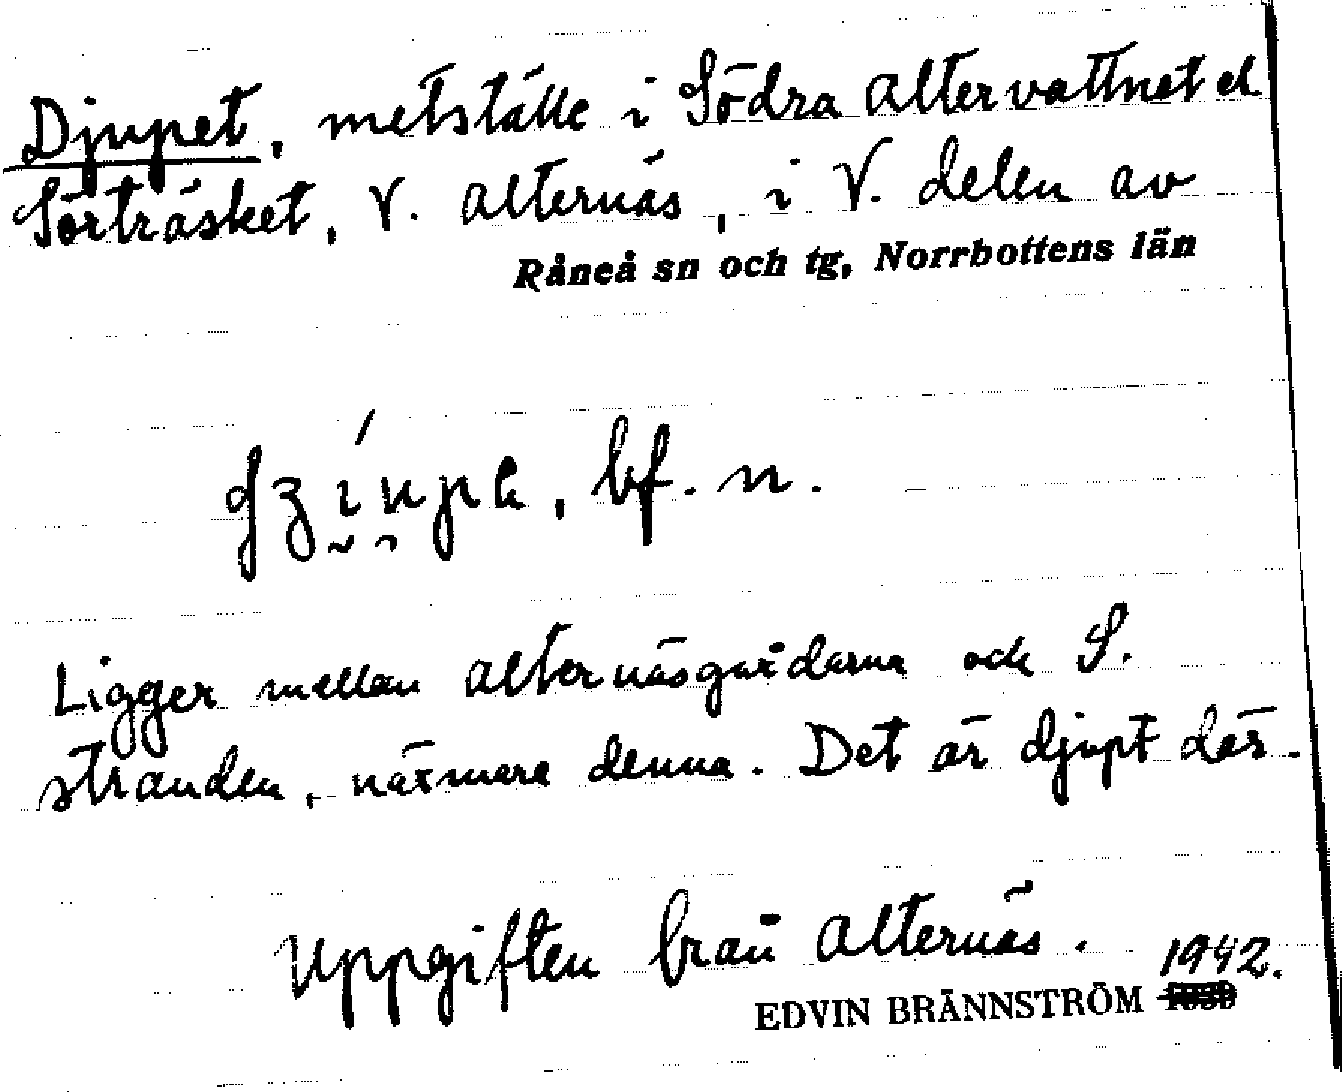 Djupet, metställe i Södra Altervattnet el.
Sörträsket, V. Alternäs, i V. delen av
Råneå sn och tg, Norrbottens län
bf. n.
Ligger mellan Alternäsgårdarna och S.
stranden, närmare denna. Det är djupt där.
Uppgiften från Alternäs.
1942.
EDVIN BRÄNNSTRÖM